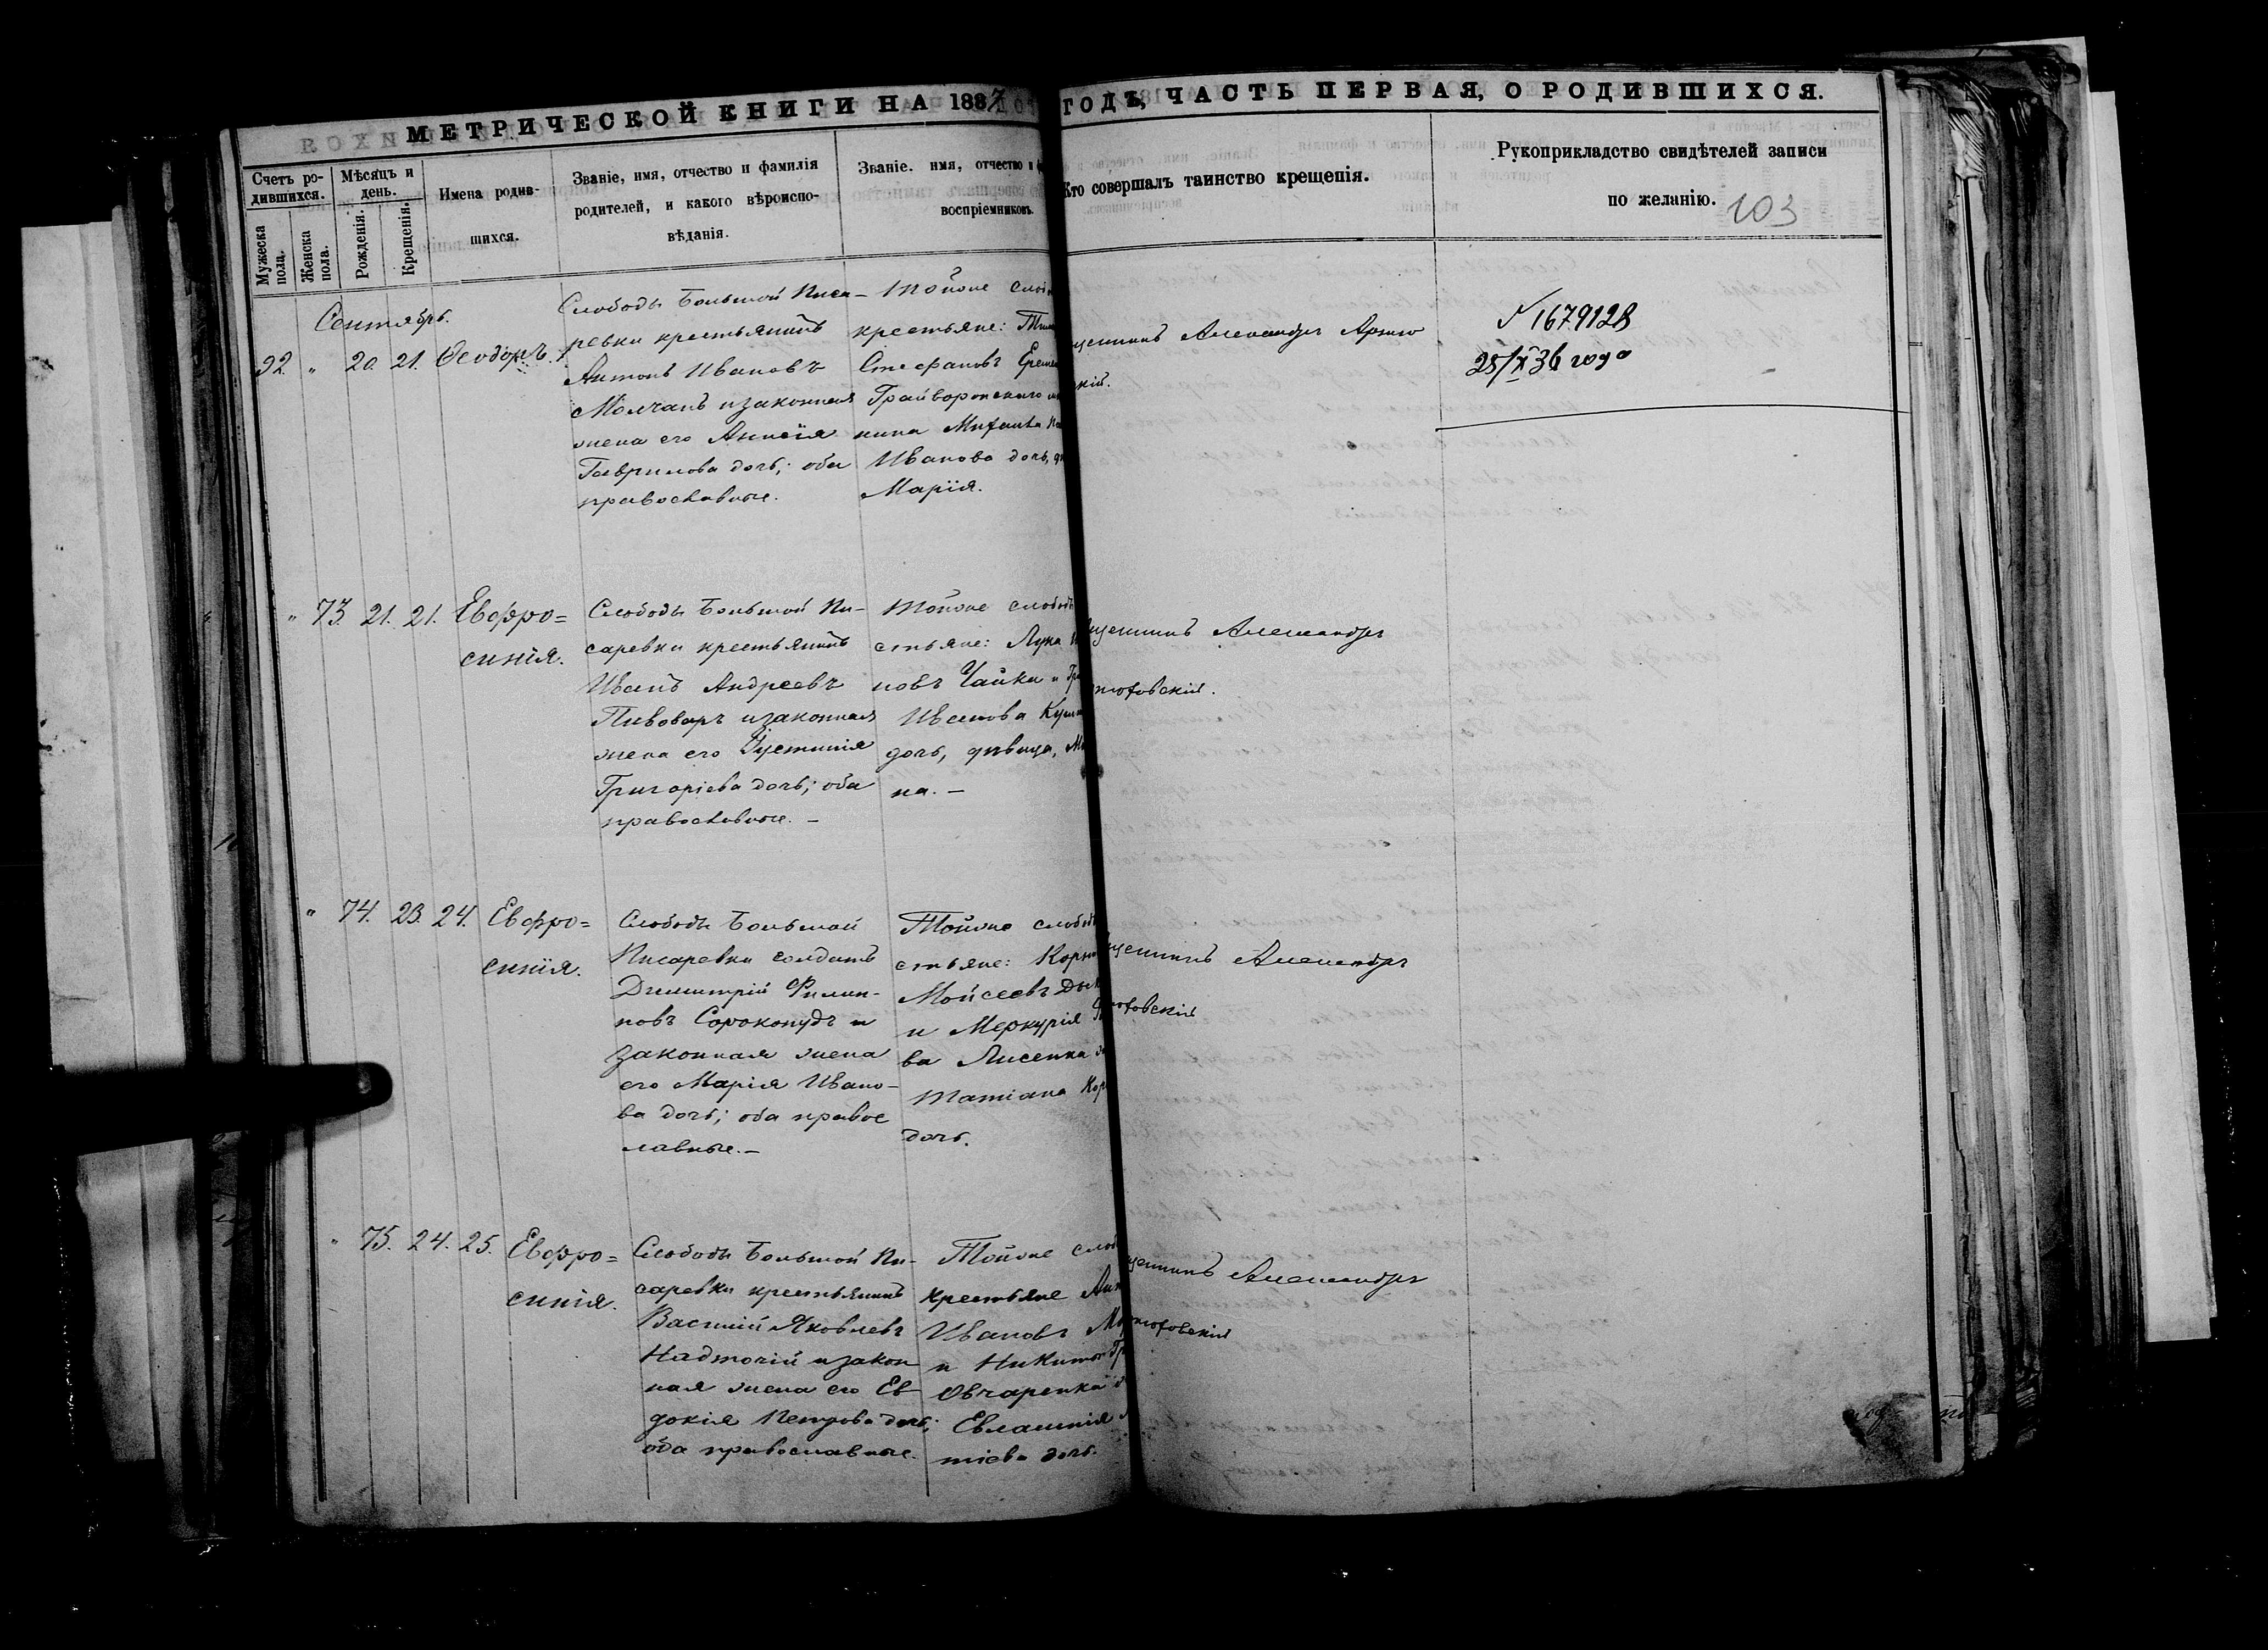 МЕТРИЧЕСКОЙ КНИГИ НА 1887
ГОДЪ, ЧАСТЬ ПЕРВАЯ, О РОДИВШИХСЯ.
Счетъ ро-
дившихся.
Мужеска
пола.
Женска
пола.
Мѣсяцъ и
день.
Рожденія.
Крещенія.
Имена родив-
шихся.
Званіе, имя, отчество и фамилія
родителей, и какого вѣроиспо-
вѣданія.
Званіе. имя, отчество и
воспріемниковъ.
Кто совершалъ таинство крещенія.
Рукоприкладство свидѣтелей записи
по желанію.
103
Сентябрь.
92. " 20. 21. Ѳеодоръ.
Слободы Большой Писа-
ревки крестьянинъ
Антонъ Ивановъ
Молчанъ и законная
жена его Анисія
Гаврилова дочь; оба
православные.
Тойже
крестьяне:
Стефановъ
Грайворонскаго
нина Михаила
Иванова дочь,
Марія.
Александръ
кій.
№ 1679128
25/X 36 года
" 73. 21. 21. Евфро=
синія.
Слободы Большой Пи-
саревки крестьянинъ
Иванъ Андреевъ
Пивоваръ и законная
жена его Іустинія
Григоріева дочь; оба
православные. –
Тойже слободы
стьяне: Лука
новъ Чайка и
Иванова
дочь, дѣвица,
на. –
щенникъ Александръ
"74. 23. 24. Евфро=
синія.
Слободы Большой
Писаревки солдатъ
Димитрій Филип-
повъ Сорокопудъ и
законная жена
его Марія Ивано-
ва дочь; оба право
славные. –
Тойже слободы
стьяне:
Мойсеевъ
и Меркурія
ва Лисенка
Татіана
дочь.
щенникъ Александръ
" 75. 24. 25. Евфро=
синія.
Слободы Большой Пи-
саревки крестьянинъ
Василій Яковлевъ
Надточій и закон
ная жена его Ев
докія Петрова дочь;
оба православные.
Тойже
крестьяне
Ивановъ
и Никиты
Овчаренка
Евлампія
тіева дочь.
щенникъ Александръ